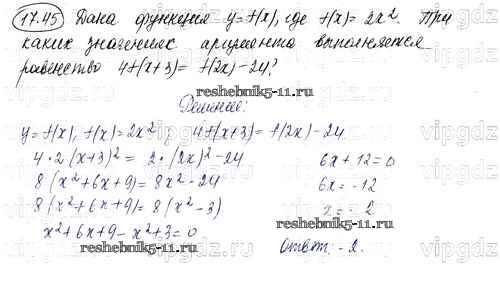 17.45 Дана функция y=f(x), где f(x)=2x². При
каких значениях аргумента выполняется
равенство 4f(x+3)= f(2x)-24?
reshebnik5-11.ru
Решение:
y=f(x), f(x)=2x², 4f(x+3)=f(2x)-24.
4·2(x+3)²= 2·(2x)²-24
8(x²+6x+9)= 8x²-24
8(x²+6x+9)=8(x²-3)
x²+6x+9-x²+3=0
6x+12=0
6x=-12
x=-2
reshebnik5-11.ru
reshebnik5-11.ru
Ответ: -2.
vipgdz